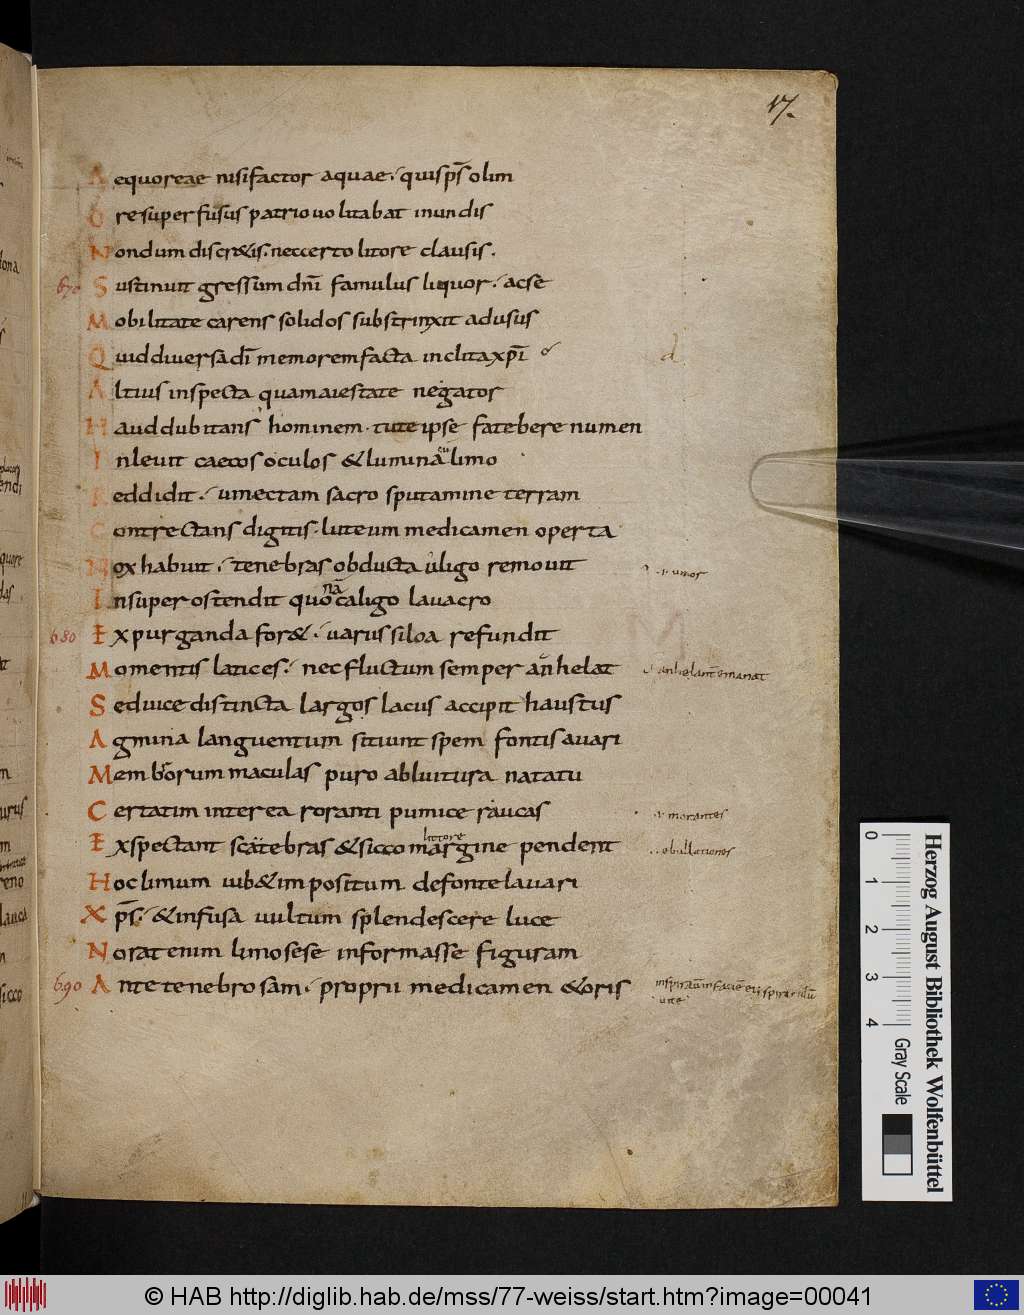 17.
Aequoreae nisi factor aquae. quisp̄s olim
Ore super fusus patrio uolitabat inundis
Nondum discr&is. neccerto litore clausis.
670 Sustinuit gressum dnī famulus liquor. acse
Mobilitate carens solidos substrinxit adusus
Quid diuersa dī memorem facta inclita xpī
d
Altius inspecta quam aiestate negator
Haud dubitans hominem. tute ipse fatebere numen
Inleuit caecos oculos &lumina limo
Reddidit. umectam sacro sputamine terram
Contrectans digitis. luteum medicamen operta
Nox habuit. tenebras obducta uligo remouit
umor
Insuper ostendit quo na caligo lauacro
680 Expurganda for&. uarus siloa refundit
Momentis latices. nec fluctum semper anhelat
anhelant emanat
Seduice distincta largos lacus accipit haustus
Agmina languentum sitiunt spem fontis auari
Membrorum maculas puro abluitura natatu
Certatim interea roranti pumice raucas
morantes
Exspectant scatebras &sicco margine pendent
littore
ebullationes
Hoc limum iub& impositum defonte lauari
Xp̄s. &infusa uultum splendescere luce
Norat enim limo sese informasse figuram
690 Ante tenebrosam. proprii medicamen &oris
uite
Herzog August Bibliothek Wolfenbüttel
0 1 2 3 4
Gray Scale
© HAB http://diglib.hab.de/mss/77-weiss/start.htm?image=00041